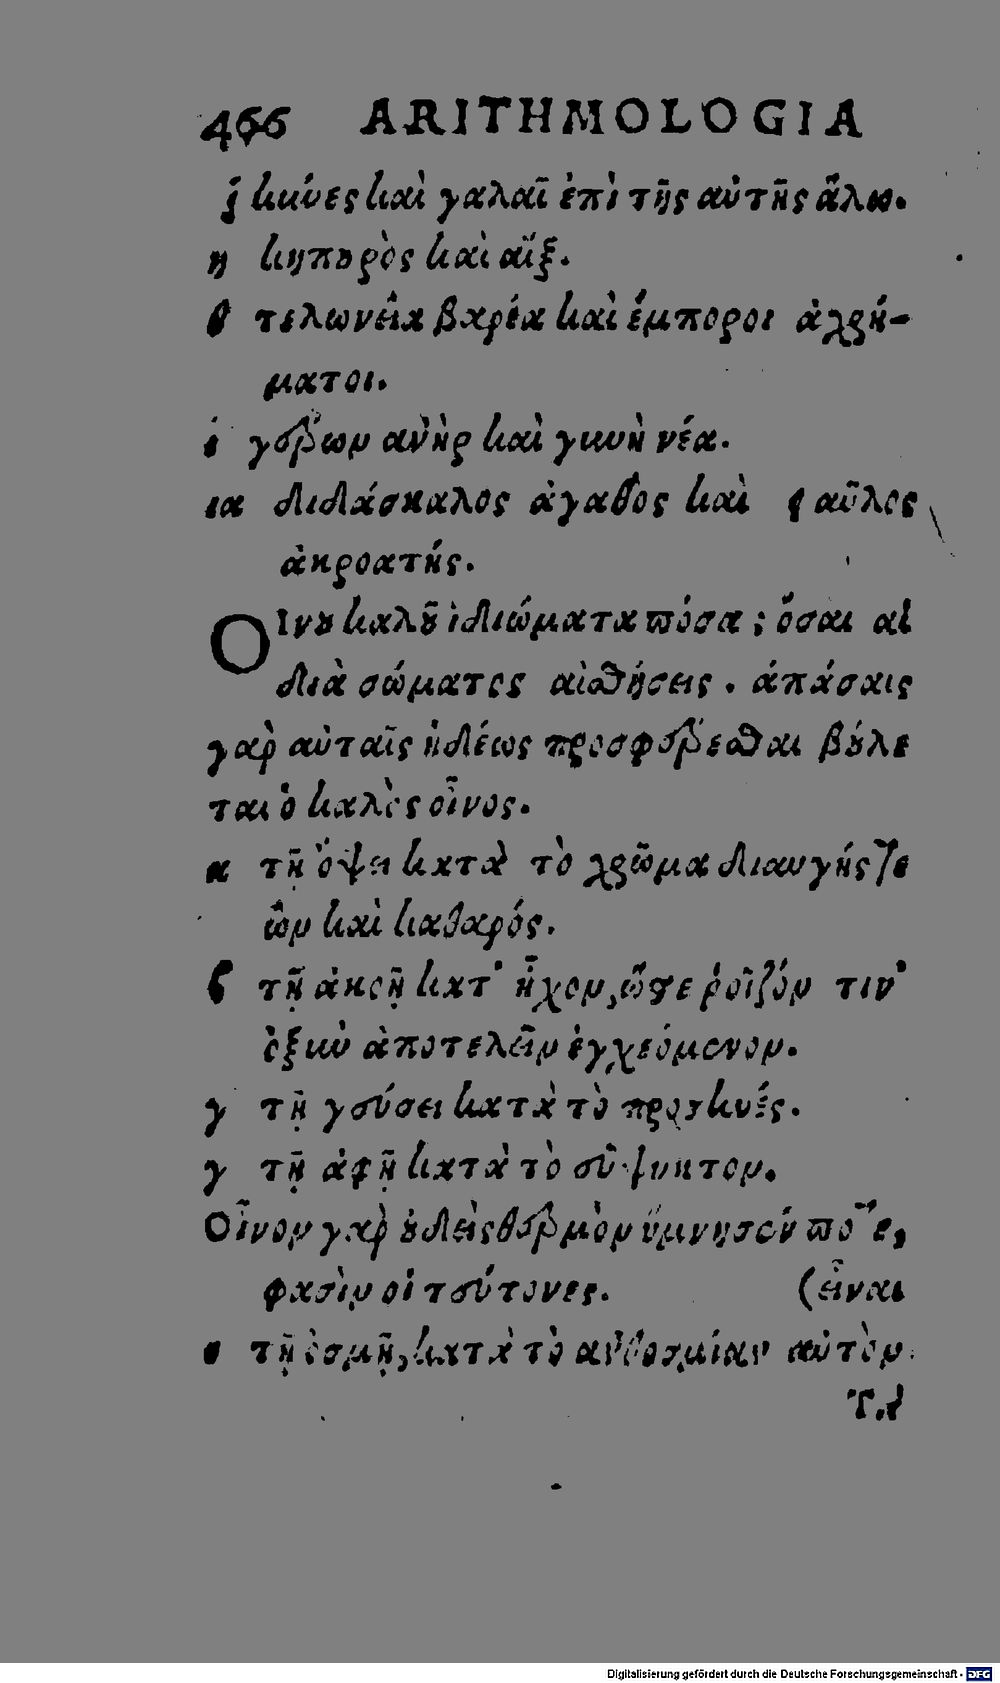 466 ARITHMOLOGIA
ζ κύνες καὶ γαλαῖ ἐπὶ τῆς αὐτῆς ἅλω.
η κηπουρὸς καὶ αἴξ.
θ τελωνεῖα βαρέα καὶ ἔμποροι ἀχρή-
ματοι.
ι γέρων ἀνὴρ καὶ γυνὴ νέα.
ια διδάσκαλος ἀγαθὸς καὶ φαῦλος
ἀκροατής.
Οἴνου καλοῦ ἰδιώματα πόσα; ὅσαι αἱ
διὰ σώματος αἰσθήσεις. ἁπάσαις
γὰρ αὐταῖς ἡδέως προσφέρεσθαι βούλε
ται ὁ καλὸς οἶνος.
α τῇ ὄψει κατὰ τὸ χρῶμα διαυγής τε
ὢν καὶ καθαρός.
ϛ τῇ ἀκοῇ κατ' ἦχον, ὥστε ῥοῖζόν τιν'
ὀξὺν ἀποτελεῖν ἐγχεόμενον.
γ τῇ γεύσει κατὰ τὸ προσηνές.
γ τῇ ἁφῇ κατὰ τὸ εὔψυκτον.
Οἶνον γὰρ οὐδεὶς θερμὸν ὕμνησέν ποτε,
φασὶν οἱ τεύτονες. (εἶναι
ε τῇ ὀσμῇ, κατὰ τὸ ἀνθοσμίαν αὐτὸν
Digitalisierung gefördert durch die Deutsche Forschungsgemeinschaft - DFG